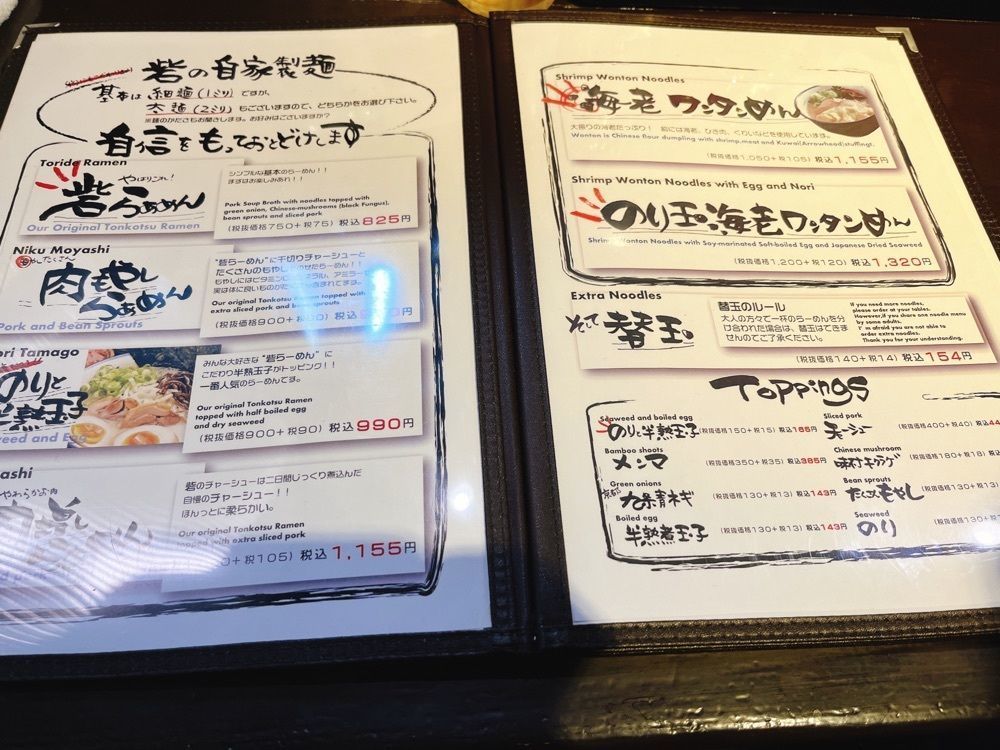 砦の自家製麺
基本は細麺(1ミリ)ですが、
太麺(2ミリ)もございますので、どちらかをお選び下さい。
※麺のかたさもお聞きします。お好みはございますか?
自信をもっておとどけします
Toride Ramen
やはりこれ!
砦らぁめん
Our Original Tonkotsu Ramen
シンプルな基本のらーめん!!
まずはお楽しみあれ!!
Pork Soup Broth with noodles topped with
green onion, Chinese-mushrooms (black Fungus),
bean sprouts and sliced pork
(税抜価格750+税75) 税込825円
Niku Moyashi
もやしたくさん
肉もやしらぁめん
Pork and Bean Sprouts
"砦らーめん"に千切りチャーシューと
たくさんのもやしをのせたらーめん!!
Our original Tonkotsu Ramen topped with
extra sliced pork and bean sprouts
(税抜価格900+税90)
ori Tamago
のりと
半熟玉子
weed and Egg
みんな大好きな"砦らーめん"に
こだわり半熟玉子がトッピング!!
一番人気のらーめんです。
Our original Tonkotsu Ramen
topped with half boiled egg
and dry seaweed
(税抜価格900+税90) 税込990円
ashi
やわらかお肉
砦のチャーシューは二日間じっくり煮込んだ
自慢のチャーシュー!!
ほんっとに柔らかい。
Our original Tonkotsu Ramen
topped with extra sliced pork
0+税105) 税込1,155円
Shrimp Wonton Noodles
海老ワンタンめん
大振りの海老たっぷり! 餡には海老、ひき肉、くわいなどを使用しています。
Wonton is Chinese flour dumpling with shrimp,meat and Kuwai(Arrowhead)stuffingt.
(税抜価格1,050+税105) 税込1,155円
Shrimp Wonton Noodles with Egg and Nori
のり玉海老ワンタンめん
Shrimp Wonton Noodles with Soy-marinated Soft-boiled Egg and Japanese Dried Seaweed
(税抜価格1,200+税120) 税込1,320円
Extra Noodles
そして替玉。
替玉のルール
大人の方々で一杯のらーめんを分
け合われた場合は、替玉はできま
せんのでご了承ください。
If you need more noodles,
please order at your tables.
However,if you share one noodle menu
by some adults,
I'm afraid you are not able to
order extra noodles.
Thank you for your understanding.
(税抜価格140+税14) 税込154円
Toppings
Seaweed and boiled egg
のりと半熟玉子(税抜価格150+税15) 税込165円
Bamboo shoots
メンマ (税抜価格350+税35) 税込385円
Green onions
京都産 九条青ネギ (税抜価格130+税13) 税込143円
Boiled egg
半熟煮玉子 (税抜価格130+税13) 税込143円
Sliced pork
チャーシュー (税抜価格400+税40) 税込44
Chinese mushroom
味付キクラゲ (税抜価格180+税18) 税込
Bean sprouts
たくさんもやし (税抜価格130+税13)
Seaweed
のり (税抜価格130+税13)